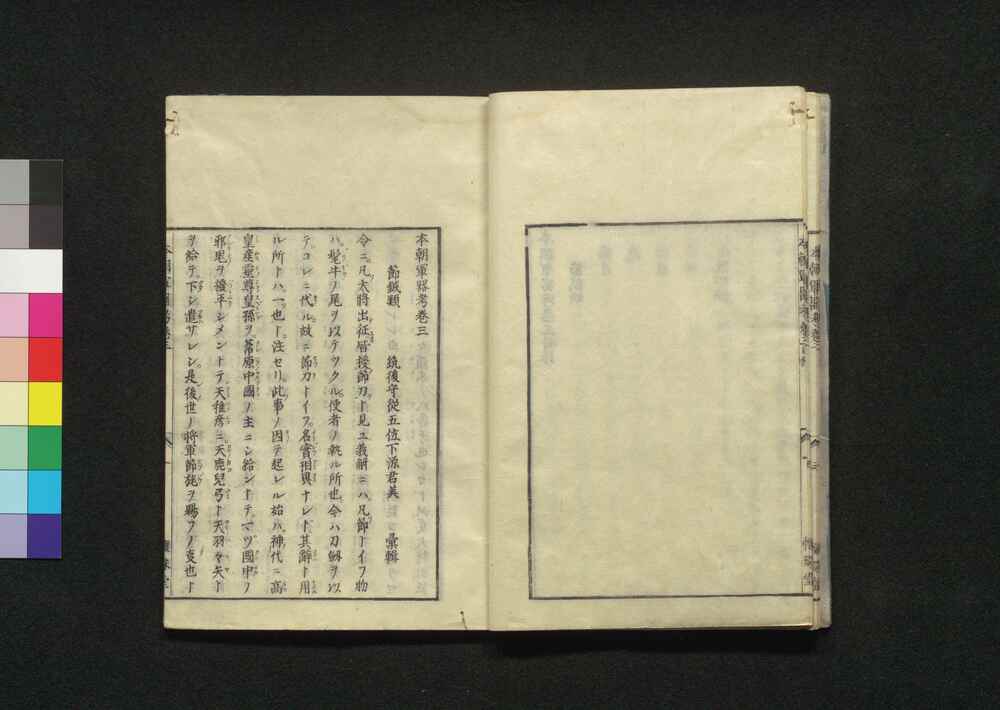 本朝軍器考巻三
節鉞類
筑後守從五位下源君美 彙輯
令ニ凡大將出征皆授節刀ト見エ義解ニハ凡節トイフ物
ハ髦牛ノ尾ヲ以テツクル使者ノ執ル所也今ハ刀劔ヲ以
テコレニ代ル故ニ節刀トイフ名實相異ナレト其辭ト用
ル所トハ一也ト注セリ此事ノ因テ起レル始ハ神代ニ高
皇産靈尊皇孫ヲ葦原中國ノ主ニシ給ントテマヅ國中ノ
邪鬼ヲ撥平シメントテ天稚彦ニ天鹿兒弓ト天羽々矢ト
ヲ給テ下シ遣サレシ是後世ノ將軍節鉞ヲ賜フノ支也ト